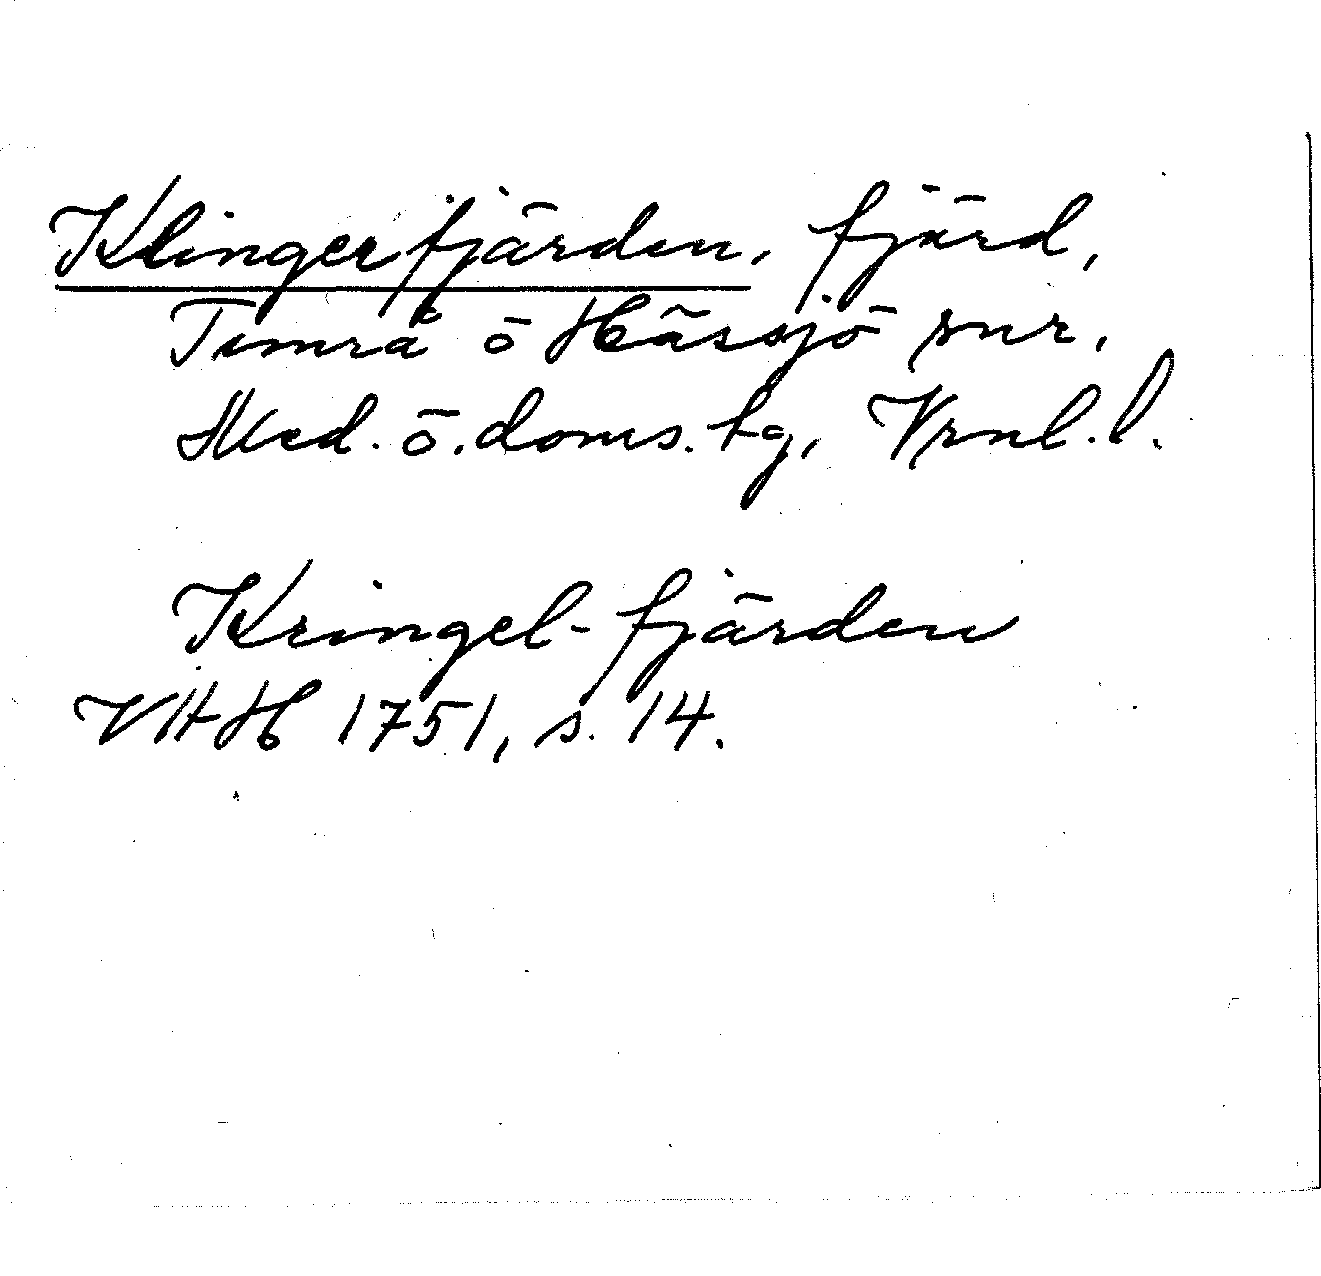 Klingerfjärden, fjärd,
Timrå o Hässjö snr,
Med. ö. doms. hg, Vrnl. l.
Kringel-fjärden
VHH 1751, s. 14.